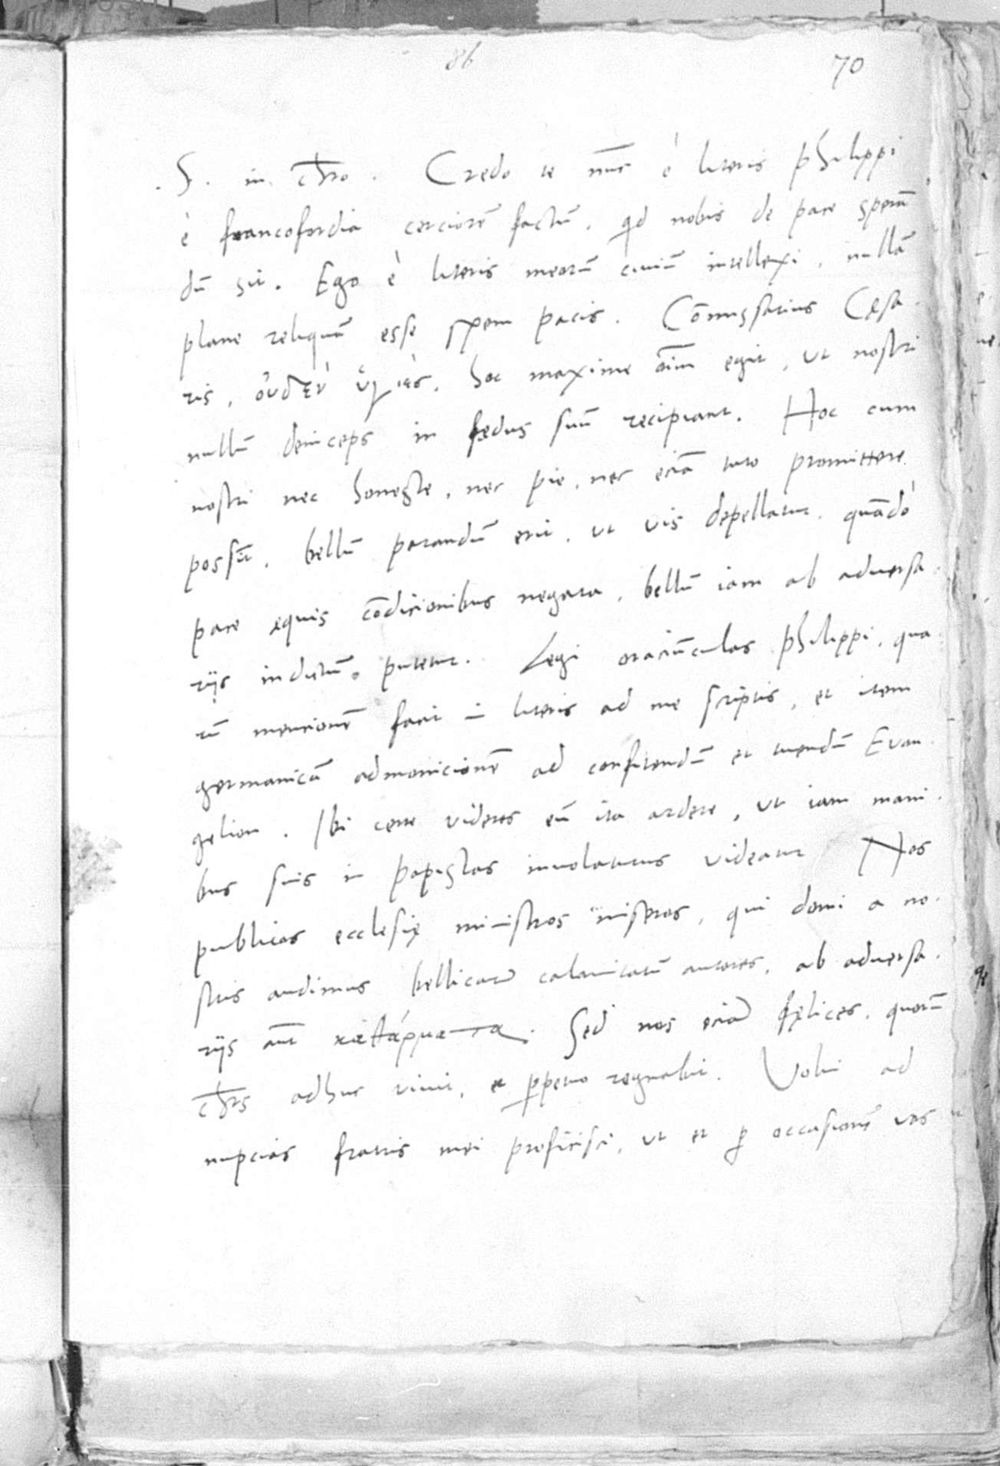 86
70
.S. in chro. Credo te nūc è literis Philippi
è francofordia cerciorē factū, qd nobis de pace sperā
dū sit. Ego è literis meorū civiū intellexi, nullā
plane reliquā esse spem pacis. Cōmissarius Cęsa
ris, οὐδὲν ὑγιὲς, hoc maxime oīm egit, ut nostri
nullū deinceps in fędus suū recipiant. Hoc cum
nostri nec honeste, nec pie, nec eciā tuto promittere
possūt, bellū parandū erit, ut vis depellatur, quādo
pace equis cōdicionibus negata, bellū iam ab adversa
riis indictū putetur. Legi oraciūculas Philippi, qua
rū mencionē facit in literis ad me scriptis, et item
germanicā admonicionē ad confitendū et tuendū Evan
gelion. Ibi certe videres eū ita ardere, ut iam mani
bus suis in papistas involaturus videatur Nos
publicos ecclesię ministros miseros, qui domi a no
stris audimus bellicarū calamitatū autores, ab adversa
riis aūt καθάρματα. Sed nos eciā fęlices, quorū
Chrs adhuc vivit, et perpetuo regnabit. Volui ad
nupcias fratris mei proficisci, ut et per occasionē vos